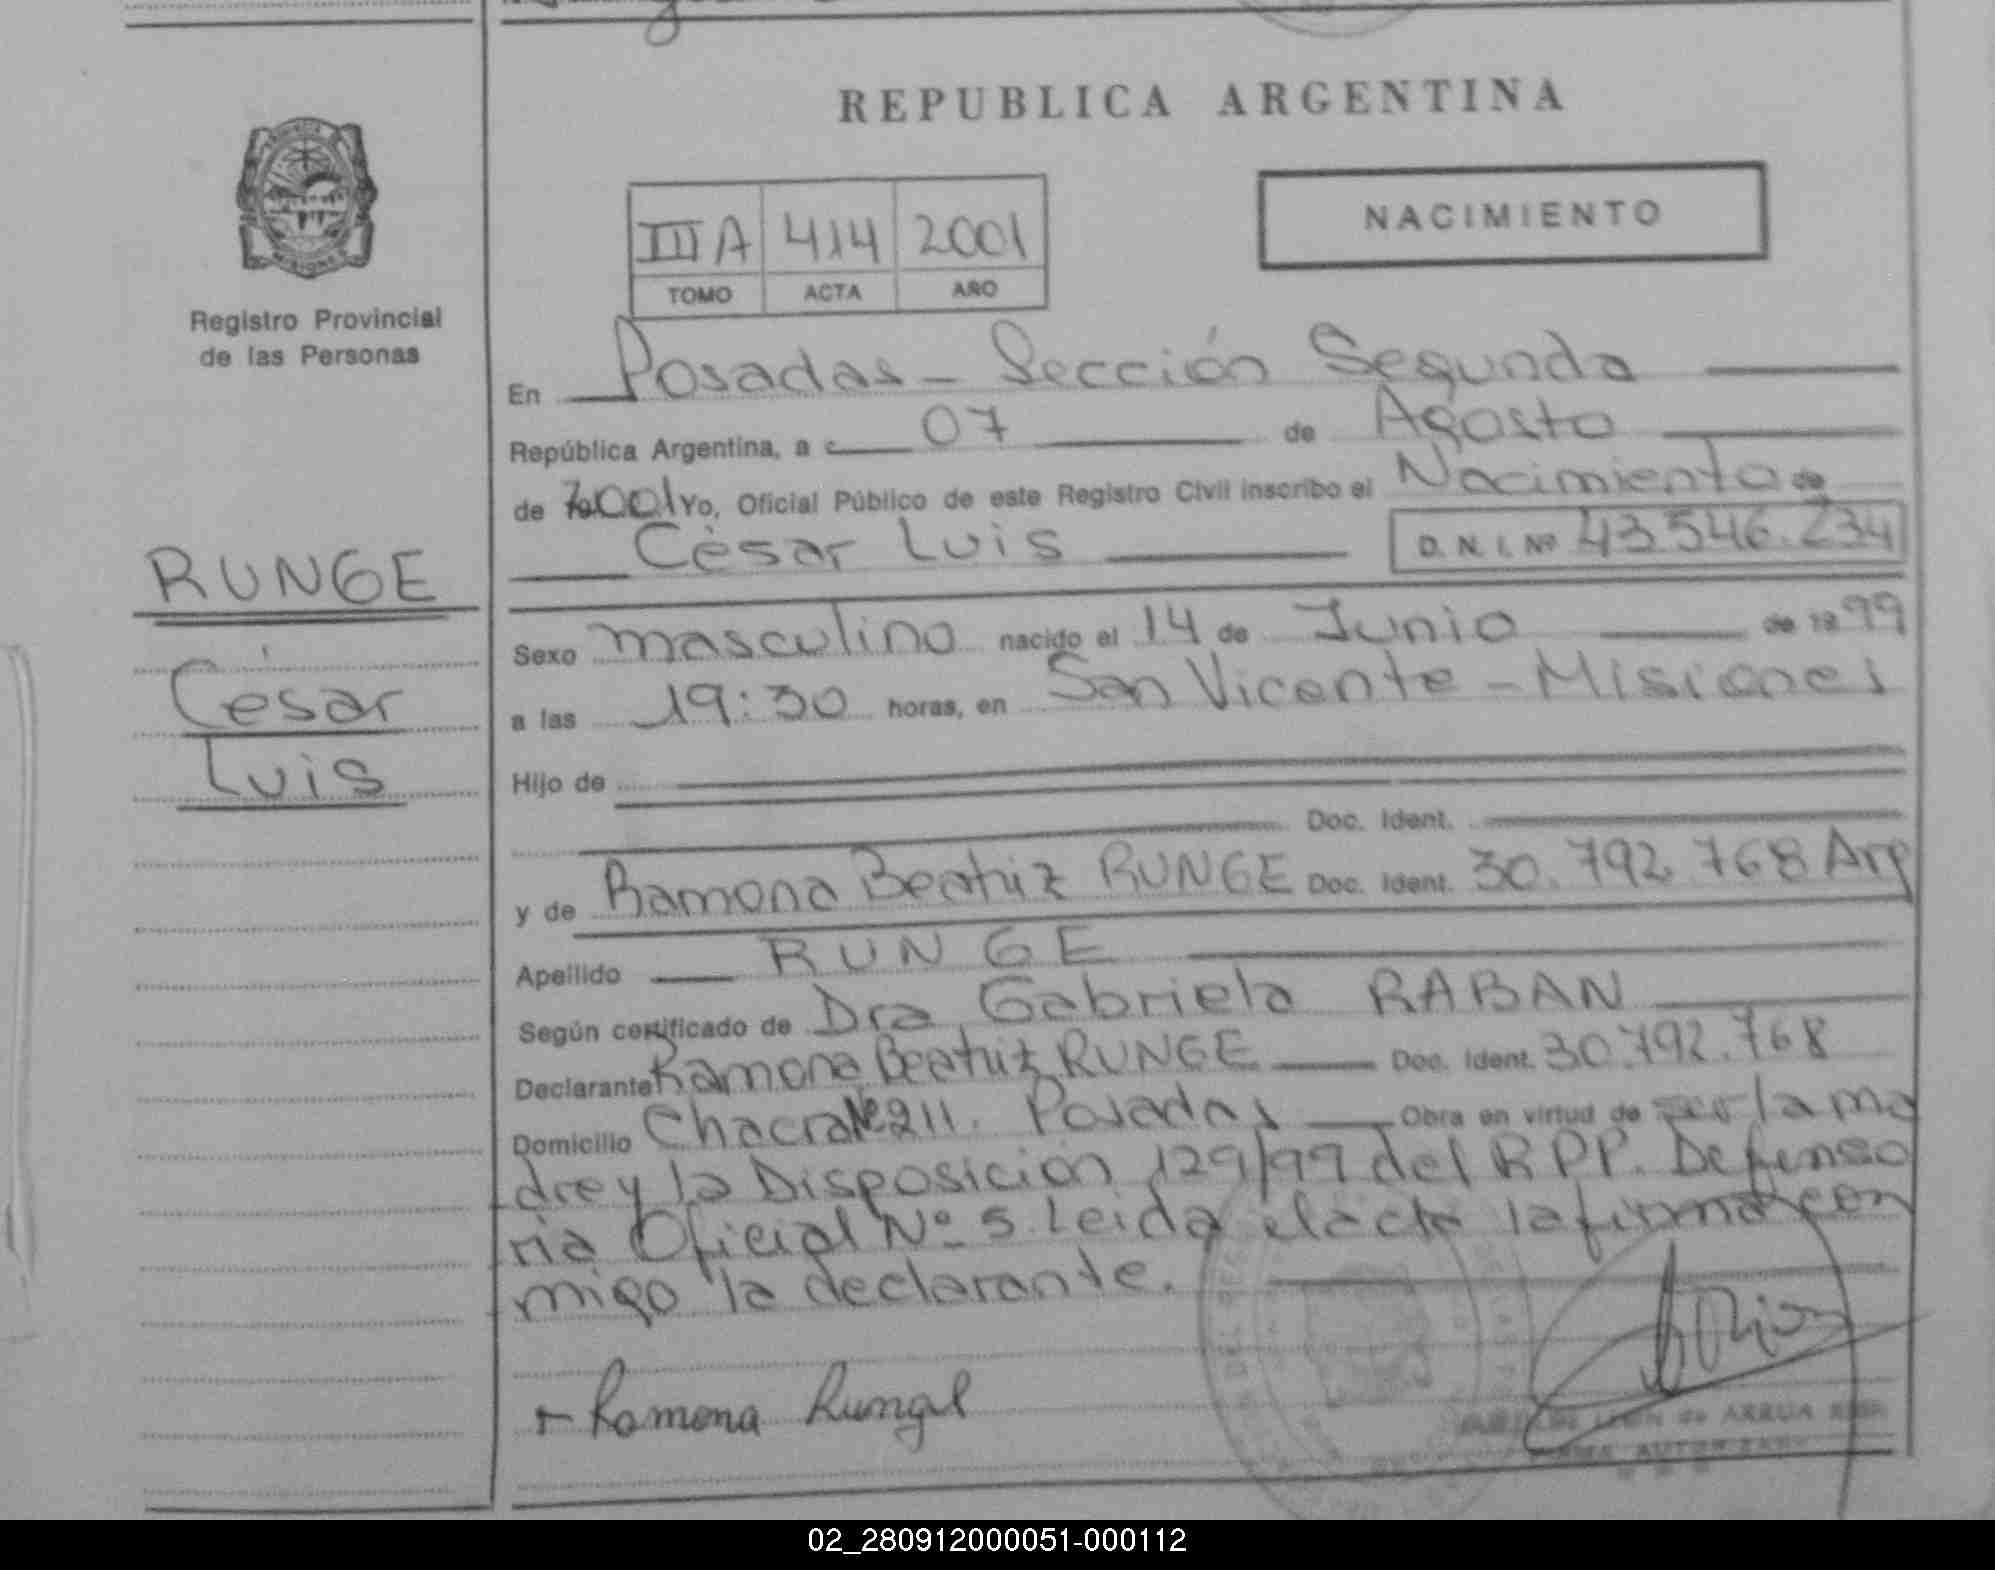 REPUBLICA ARGENTINA
MISIONES
Registro Provincial
de las Personas
III A 414 2001
TOMO ACTA AÑO
NACIMIENTO
En Posadas - Sección Segunda
República Argentina, a 07 de Agosto
de 2001 Yo, Oficial Público de este Registro Civil inscribo el Nacimiento de
César Luis D. N. I. Nº 43.546.234
RUNGE
César
Luis
Sexo masculino nacido el 14 de Junio de 19 99
a las 19:30 horas, en San Vicente - Misiones
Hijo de
Doc. Ident.
y de Ramona Beatriz RUNGE Doc. Ident. 30.792.768 Arg
Apellido RUNGE
Según certificado de Dra Gabriela RABAN
Declarante Ramona Beatriz RUNGE Doc. Ident. 30.792.768
Domicilio Chacra Nº 211. Posadas Obra en virtud de ser la ma
dre y la Disposición 129/99 del R.P.P. Defenso
ria Oficial Nº 5. Leida el acta la firma con
migo la declarante.
+ Ramona Runge
de ARRUA
FIRMA AUTORIZADA
02_280912000051-000112